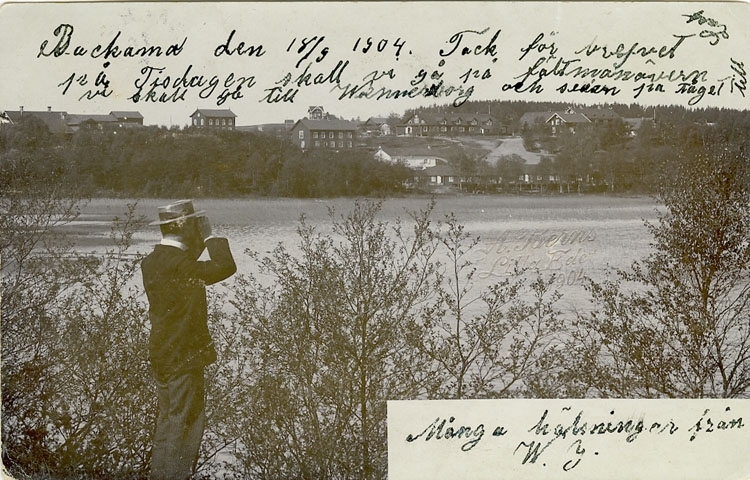 Backamo den 18/9 1904. Tack för brefvet
på Tisdagen skall vi gå på fältmanövern
vi skall gå till Wännersborg och sedan på tåget
till
Många hälsningar från
W. J.
1904